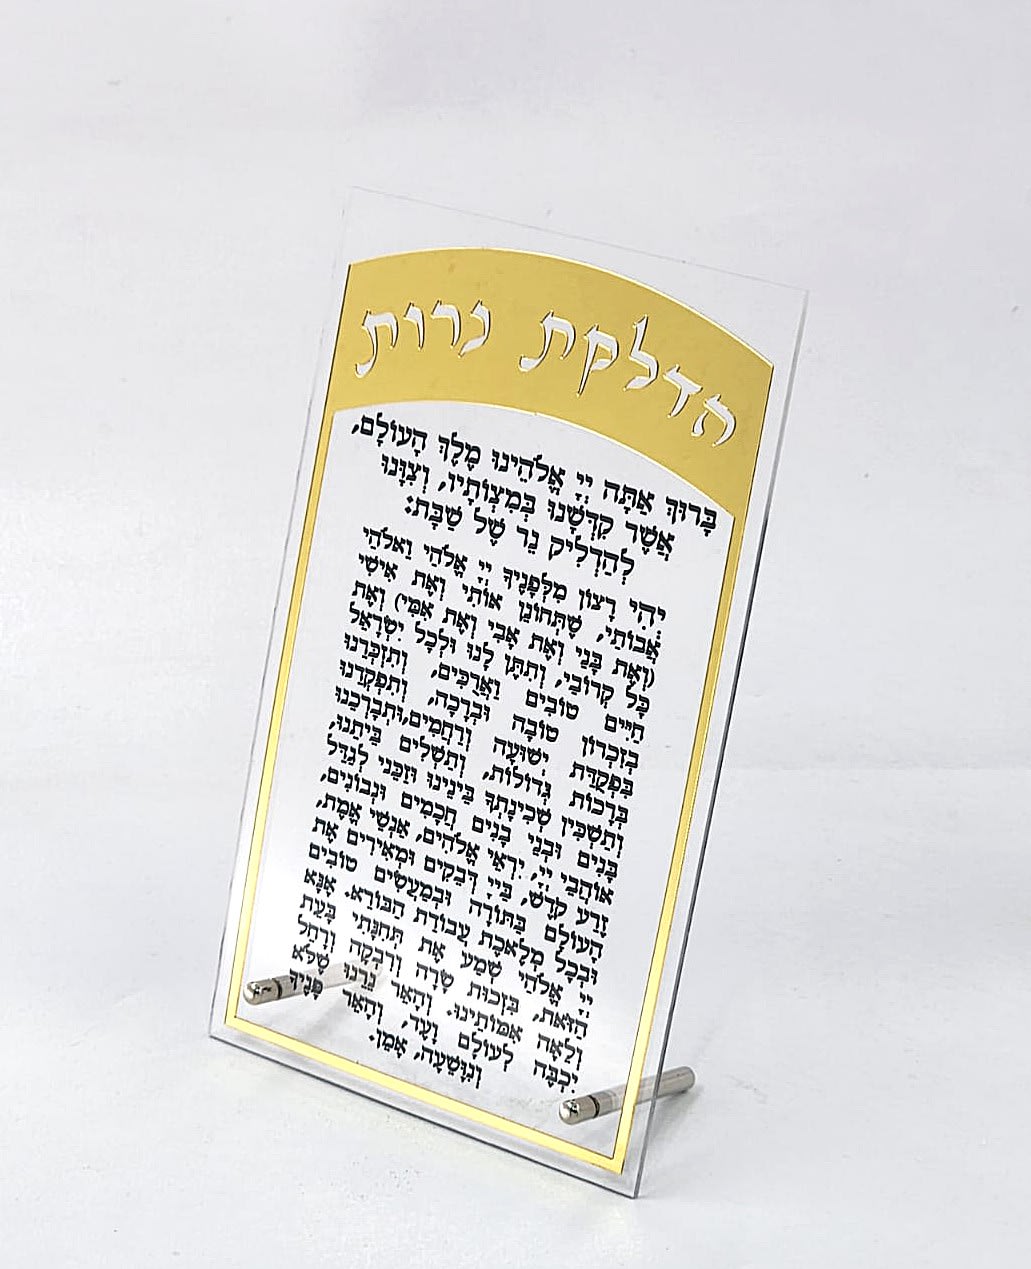 הדלקת נרות
בָּרוּךְ אַתָּה יְיָ אֱלֹהֵינוּ מֶלֶךְ הָעוֹלָם,
אֲשֶׁר קִדְּשָׁנוּ בְּמִצְוֹתָיו, וְצִוָּנוּ
לְהַדְלִיק נֵר שֶׁל שַׁבָּת:
יְהִי רָצוֹן מִלְּפָנֶיךָ יְיָ אֱלֹהַי וֵאלֹהֵי
אֲבוֹתַי, שֶׁתְּחוֹנֵן אוֹתִי וְאֶת אִישִׁי
(וְאֶת בָּנַי וְאֶת אָבִי וְאֶת אִמִּי) וְאֶת
כָּל קְרוֹבַי, וְתִתֵּן לָנוּ וּלְכָל יִשְׂרָאֵל
חַיִּים טוֹבִים וַאֲרֻכִּים, וְתִזְכְּרֵנוּ
בְּזִכְרוֹן טוֹבָה וּבְרָכָה, וְתִפְקְדֵנוּ
בִּפְקֻדַּת יְשׁוּעָה וְרַחֲמִים,וּתְבָרְכֵנוּ
בְּרָכוֹת גְּדוֹלוֹת, וְתַשְׁלִים בָּיתֵנוּ,
וְתַשְׁכֵּין שְׁכִינָתְךָ בֵּינֵינוּ וְזַכֵּנִי לְגַדֵּל
בָּנִים וּבְנֵי בָנִים חֲכָמִים וּנְבוֹנִים,
אוֹהֲבֵי יְיָ, יִרְאֵי אֱלֹהִים, אַנְשֵׁי אֱמֶת,
זֶרַע קֹדֶשׁ, בַּייָ דְּבֵקִים וּמְאִירִים אֶת
הָעוֹלָם בַּתּוֹרָה וּבְמַעֲשִׂים טוֹבִים
וּבְכָל מְלֶאכֶת עֲבוֹדַת הַבּוֹרֵא. אָנָּא
יְיָ אֱלֹהַי שְׁמַע אֶת תְּחִנָּתִי בָּעֵת
הַזֹּאת, בִּזְכוּת שָׂרָה וְרִבְקָה וְרָחֵל
וְלֵאָה אִמּוֹתֵינוּ. וְהָאֵר נֵרֵנוּ שֶׁלֹּא
יִכְבֶּה לְעוֹלָם וָעֶד, וְהָאֵר פָּנֶיךָ
וְנִוָּשֵׁעָה, אָמֵן.